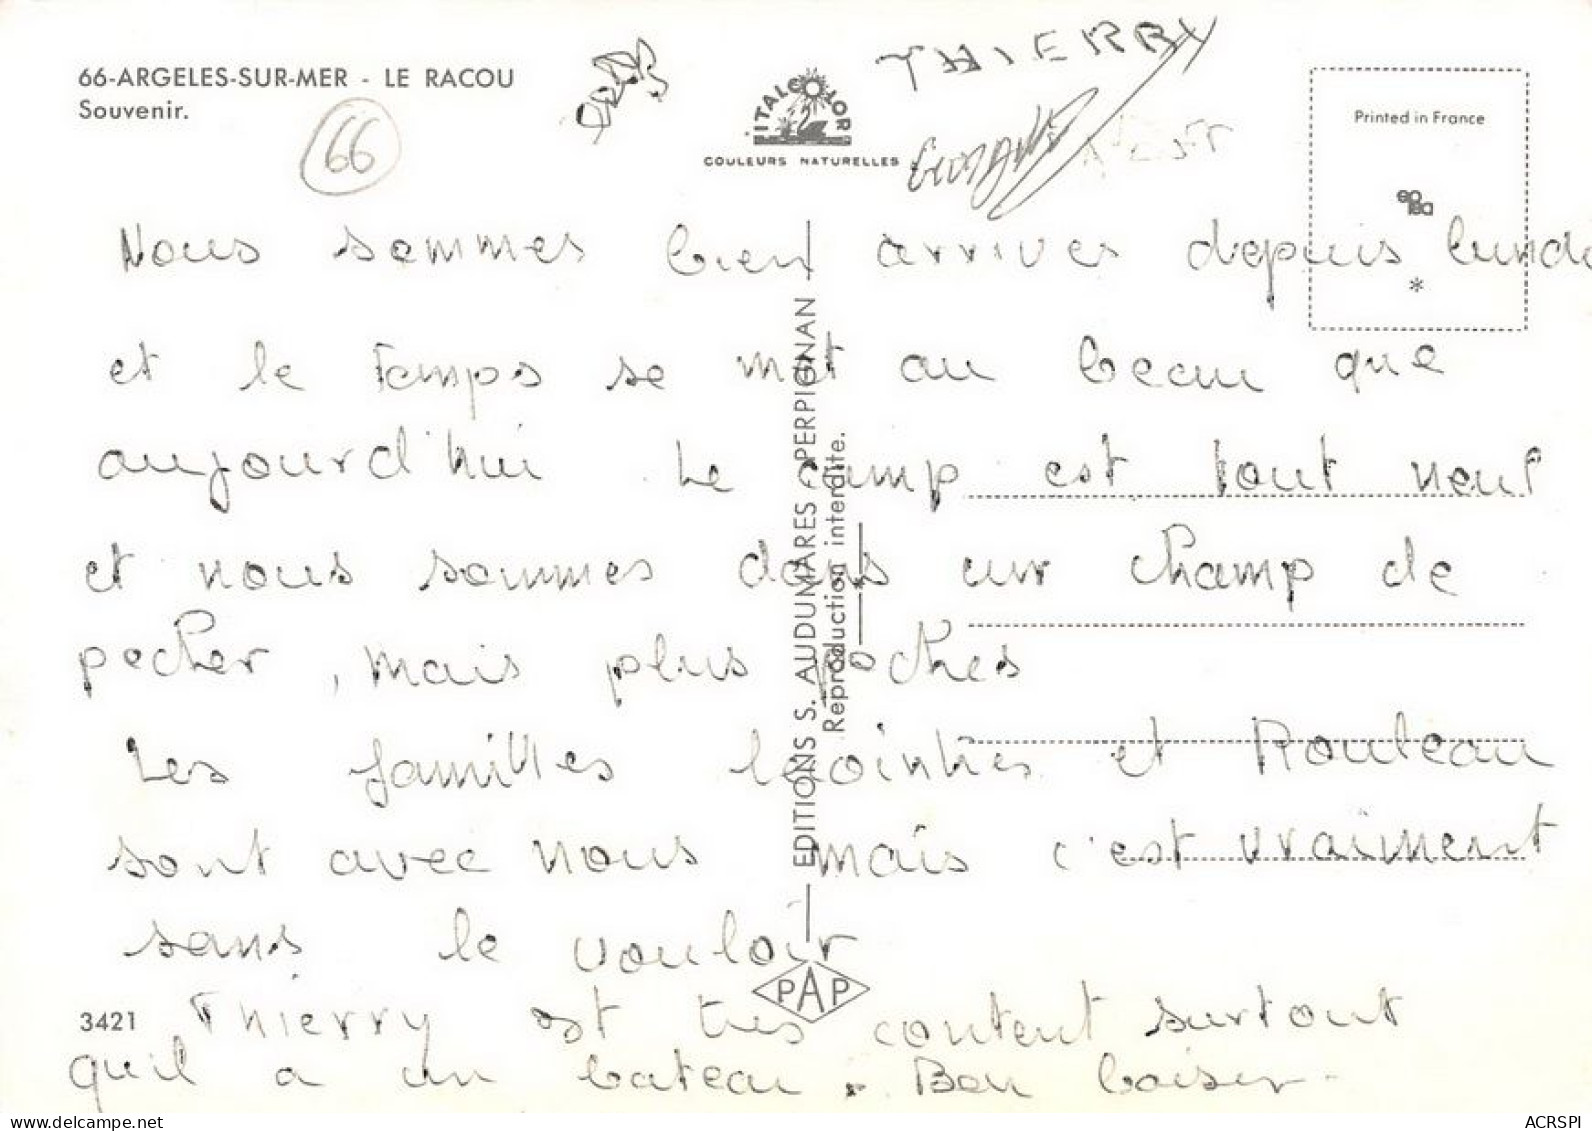 66-ARGELES-SUR-MER - LE RACOU
Souvenir.
66
ITALCOLOR
COULEURS NATURELLES
THIERRY
Printed in France
Nous sommes bien arrives depuis lund
et le temps se met au beau que
aujourd'hui Le camp est tout neuf
et nous sommes dans un champ de
pecher, mais plus poches
Les familles et Rouleau
sont avec nous mais c'est vraiment
sans le vouloir
3421 Thierry est très content surtout
qu'il a un bateau. Bon baiser -
EDITIONS S. AUDUMARES PERPIGNAN
Reproduction interdite.
PAP
ACRSPI